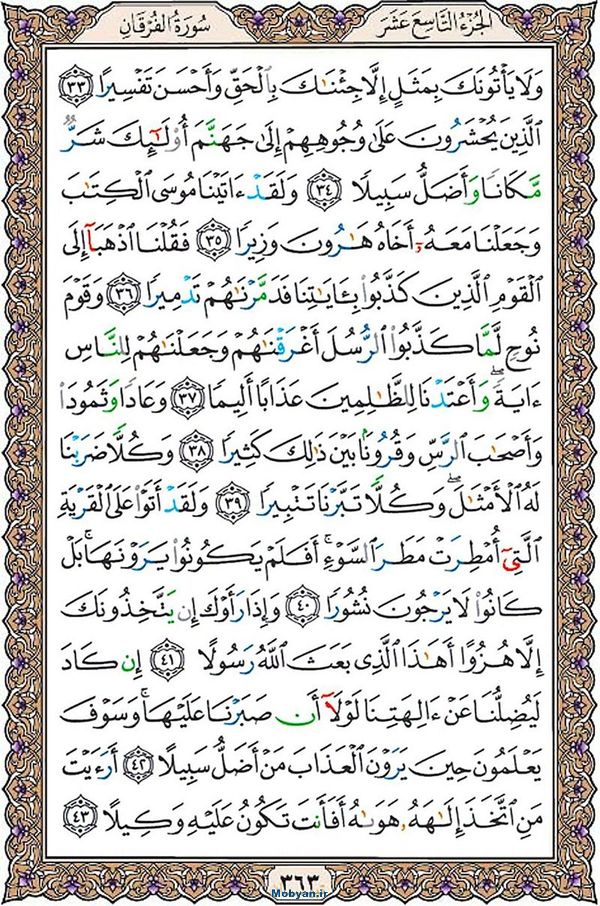 الجزء التاسع عشر
سورة الفرقان
وَلَا يَأْتُونَكَ بِمَثَلٍ إِلَّا جِئْنَٰكَ بِٱلْحَقِّ وَأَحْسَنَ تَفْسِيرًا ﴿٣٣﴾
ٱلَّذِينَ يُحْشَرُونَ عَلَىٰ وُجُوهِهِمْ إِلَىٰ جَهَنَّمَ أُو۟لَٰٓئِكَ شَرٌّ
مَّكَانًا وَأَضَلُّ سَبِيلًا ﴿٣٤﴾ وَلَقَدْ ءَاتَيْنَا مُوسَى ٱلْكِتَٰبَ
وَجَعَلْنَا مَعَهُۥٓ أَخَاهُ هَٰرُونَ وَزِيرًا ﴿٣٥﴾ فَقُلْنَا ٱذْهَبَآ إِلَى
ٱلْقَوْمِ ٱلَّذِينَ كَذَّبُوا۟ بِـَٔايَٰتِنَا فَدَمَّرْنَٰهُمْ تَدْمِيرًا ﴿٣٦﴾ وَقَوْمَ
نُوحٍ لَّمَّا كَذَّبُوا۟ ٱلرُّسُلَ أَغْرَقْنَٰهُمْ وَجَعَلْنَٰهُمْ لِلنَّاسِ
ءَايَةً ۖ وَأَعْتَدْنَا لِلظَّٰلِمِينَ عَذَابًا أَلِيمًا ﴿٣٧﴾ وَعَادًا وَثَمُودَا۟
وَأَصْحَٰبَ ٱلرَّسِّ وَقُرُونًۢا بَيْنَ ذَٰلِكَ كَثِيرًا ﴿٣٨﴾ وَكُلًّا ضَرَبْنَا
لَهُ ٱلْأَمْثَٰلَ ۖ وَكُلًّا تَبَّرْنَا تَتْبِيرًا ﴿٣٩﴾ وَلَقَدْ أَتَوْا۟ عَلَى ٱلْقَرْيَةِ
ٱلَّتِىٓ أُمْطِرَتْ مَطَرَ ٱلسَّوْءِ ۚ أَفَلَمْ يَكُونُوا۟ يَرَوْنَهَا ۚ بَلْ
كَانُوا۟ لَا يَرْجُونَ نُشُورًا ﴿٤٠﴾ وَإِذَا رَأَوْكَ إِن يَتَّخِذُونَكَ
إِلَّا هُزُوًا أَهَٰذَا ٱلَّذِى بَعَثَ ٱللَّهُ رَسُولًا ﴿٤١﴾ إِن كَادَ
لَيُضِلُّنَا عَنْ ءَالِهَتِنَا لَوْلَآ أَن صَبَرْنَا عَلَيْهَا ۚ وَسَوْفَ
يَعْلَمُونَ حِينَ يَرَوْنَ ٱلْعَذَابَ مَنْ أَضَلُّ سَبِيلًا ﴿٤٢﴾ أَرَءَيْتَ
مَنِ ٱتَّخَذَ إِلَٰهَهُۥ هَوَىٰهُ أَفَأَنتَ تَكُونُ عَلَيْهِ وَكِيلًا ﴿٤٣﴾
٣٦٣
Mobyan.ir